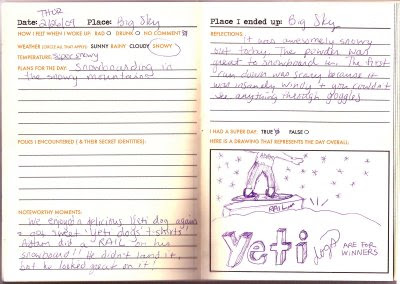 THOR
Date: 2/26/09 Place: Big Sky
HOW I FELT WHEN I WOKE UP: BAD DRUNK NO COMMENT
WEATHER (CIRCLE ALL THAT APPLY): SUNNY RAINY CLOUDY SNOWY
TEMPERATURE: super snowy
PLANS FOR THE DAY: Snowboarding in
the snowy mountains
FOLKS I ENCOUNTERED (& THEIR SECRET IDENTITIES):
NOTEWORTHY MOMENTS:
We enjoyed a delicious Yeti dog again
& got sweet "yeti dogs" t-shirts!
Adam did a RAIL on his
snowboard!! He didn't land it,
but he looked on it!
Place I ended up: Big Sky
REFLECTIONS:
It was awesomely snowy
out today. The powder was
great to snowboard in. The first
run down was scary because it
was insanely windy & you couldn't
see anything through goggles.
I HAD A SUPER DAY: TRUE FALSE
HERE IS A DRAWING THAT REPRESENTS THE DAY OVERALL:
RAIL
Yeti dogs ARE FOR
WINNERS